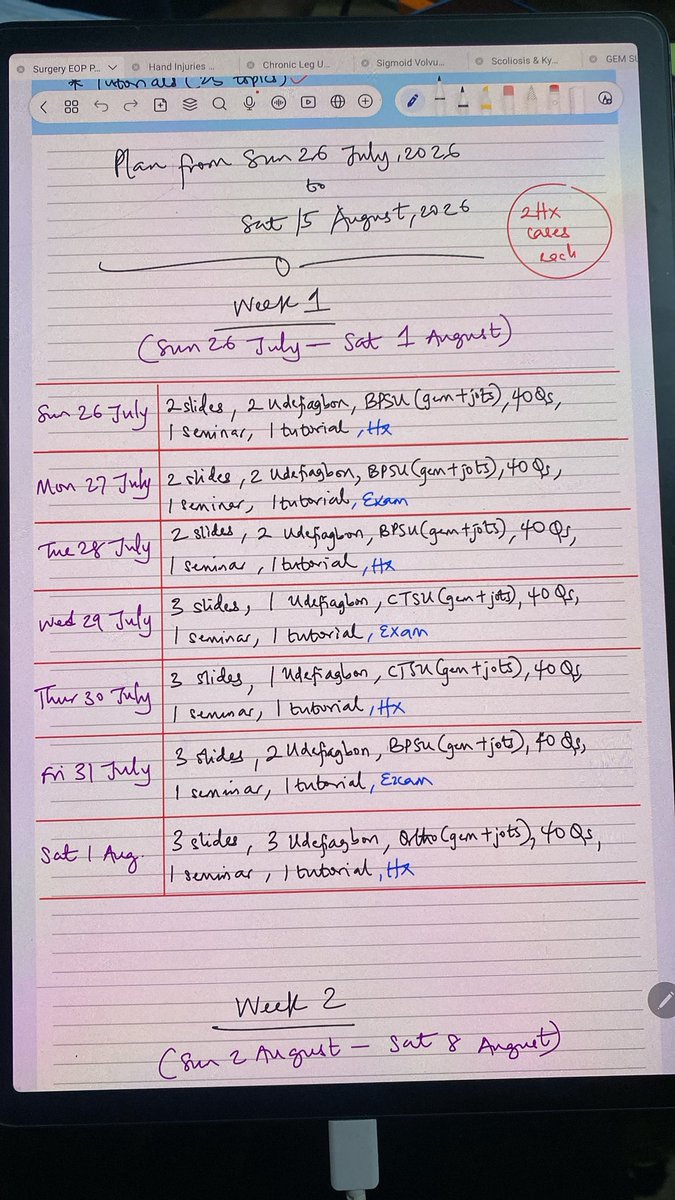 Surgery EOP P...
Hand Injuries ...
Chronic Leg U...
Sigmoid Volvu...
Scoliosis & Ky...
GEM SU
* Tutorials (25 topics) ✓
Plan from Sun 26 July, 2026
to
Sat 15 August, 2026
2Hx
cases
each
Week 1
(Sun 26 July — Sat 1 August)
Sun 26 July
2 slides, 2 Udefiagbon, BPSU (gem + jots), 40 Qs,
1 seminar, 1 tutorial, Hx
Mon 27 July
2 slides, 2 Udefiagbon, BPSU (gem + jots), 40 Qs,
1 seminar, 1 tutorial, Exam
Tue 28 July
2 slides, 2 Udefiagbon, BPSU (gem + jots), 40 Qs,
1 seminar, 1 tutorial, Hx
Wed 29 July
3 slides, 1 Udefiagbon, CTSU (gem + jots), 40 Qs,
1 seminar, 1 tutorial, Exam
Thur 30 July
3 slides, 1 Udefiagbon, CTSU (gem + jots), 40 Qs,
1 seminar, 1 tutorial, Hx
Fri 31 July
3 slides, 2 Udefiagbon, BPSU (gem + jots), 40 Qs,
1 seminar, 1 tutorial, Exam
Sat 1 Aug.
3 slides, 3 Udefiagbon, Ortho (gem + jots), 40 Qs,
1 seminar, 1 tutorial, Hx
Week 2
(Sun 2 August — Sat 8 August)